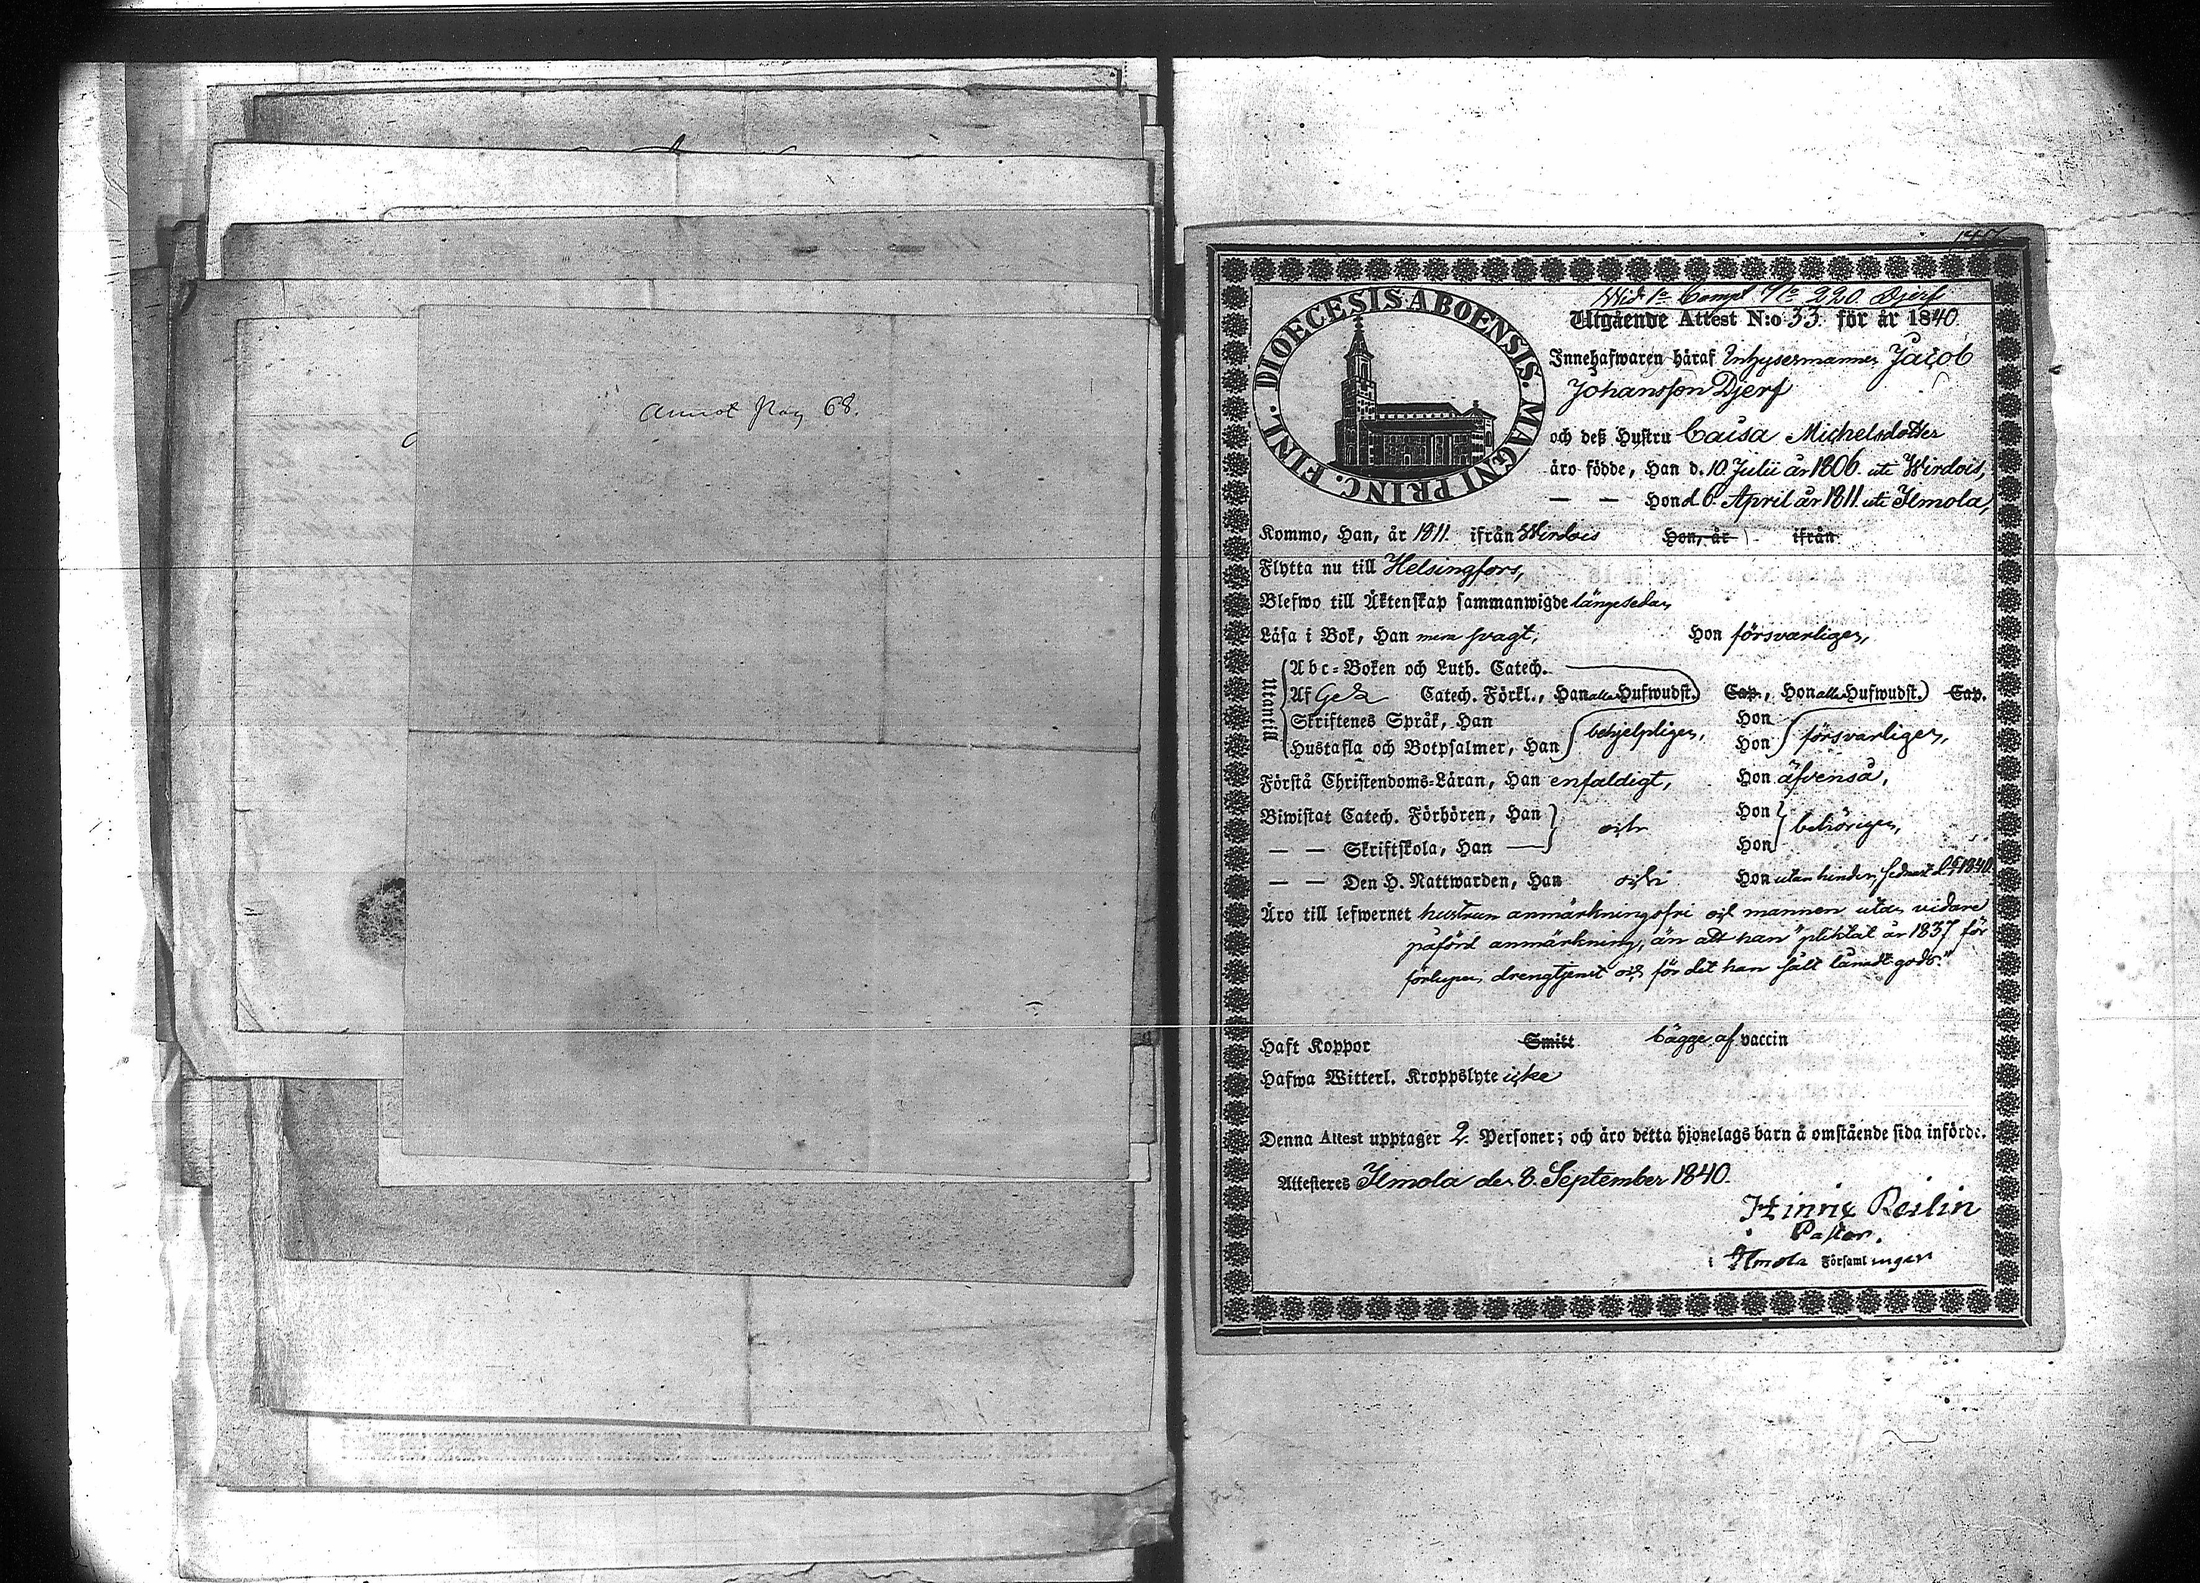 Annot Pag 68.
Wid 1e Comp. No 220. Djerf
DIOECESIS ABOENSIS. MAGNI PRINC. FINL.
Utgående Attest N:o 33. för år 1840.
Innehafwaren häraf Inhysesmannen Jacob
Johansson Djerf
och deß Hustru Caisa Michelsdotter
äro födde, Han d. 10 Julii år 1806. uti Wirdois,
— — Hon d. 6 April år 1811. uti Ilmola,
Kommo, Han, år 1811. ifrån Wirdois Hon, år ifrån
Flytta nu till Helsingfors,
Blefwo till Äktenskap sammanwigde längesedan,
Läsa i Bok, Han svagt, Hon försvarligen,
Utantill
Abc-Boken och Luth. Catech.
Af Catech. Förkl., Han alla Hufwudst. Cap., Hon alla Hufwudst. Cap.
Skriftenes Språk, Han Hon
Hustafla och Botpsalmer, Han behjelpligen, Hon försvarligen,
Förstå Christendoms-Läran, Han enfaldigt, Hon äfvenså,
Biwistat Catech. Förhören, Han Hon
och behörigen,
— — Skriftskola, Han Hon
— — Den H. Nattwarden, Han och Hon utan hinder, sednast 1840.
Äro till lefwernet hustrun anmärkningsfri och mannen utan vidare
påförd anmärkning, än att han "pliktat år 1837 för
förlupen drengtjenst och för det han sålt lånadt gods."
Haft Koppor Smitt bägge af vaccin
Hafwa Witterl. Kroppslyte icke
Denna Attest upptager 2. Personer; och äro detta hjonelags barn å omstående sida införde.
Attesteres Ilmola den 8. September 1840.
Reilin
Pastor.
i Ilmola Församlingen